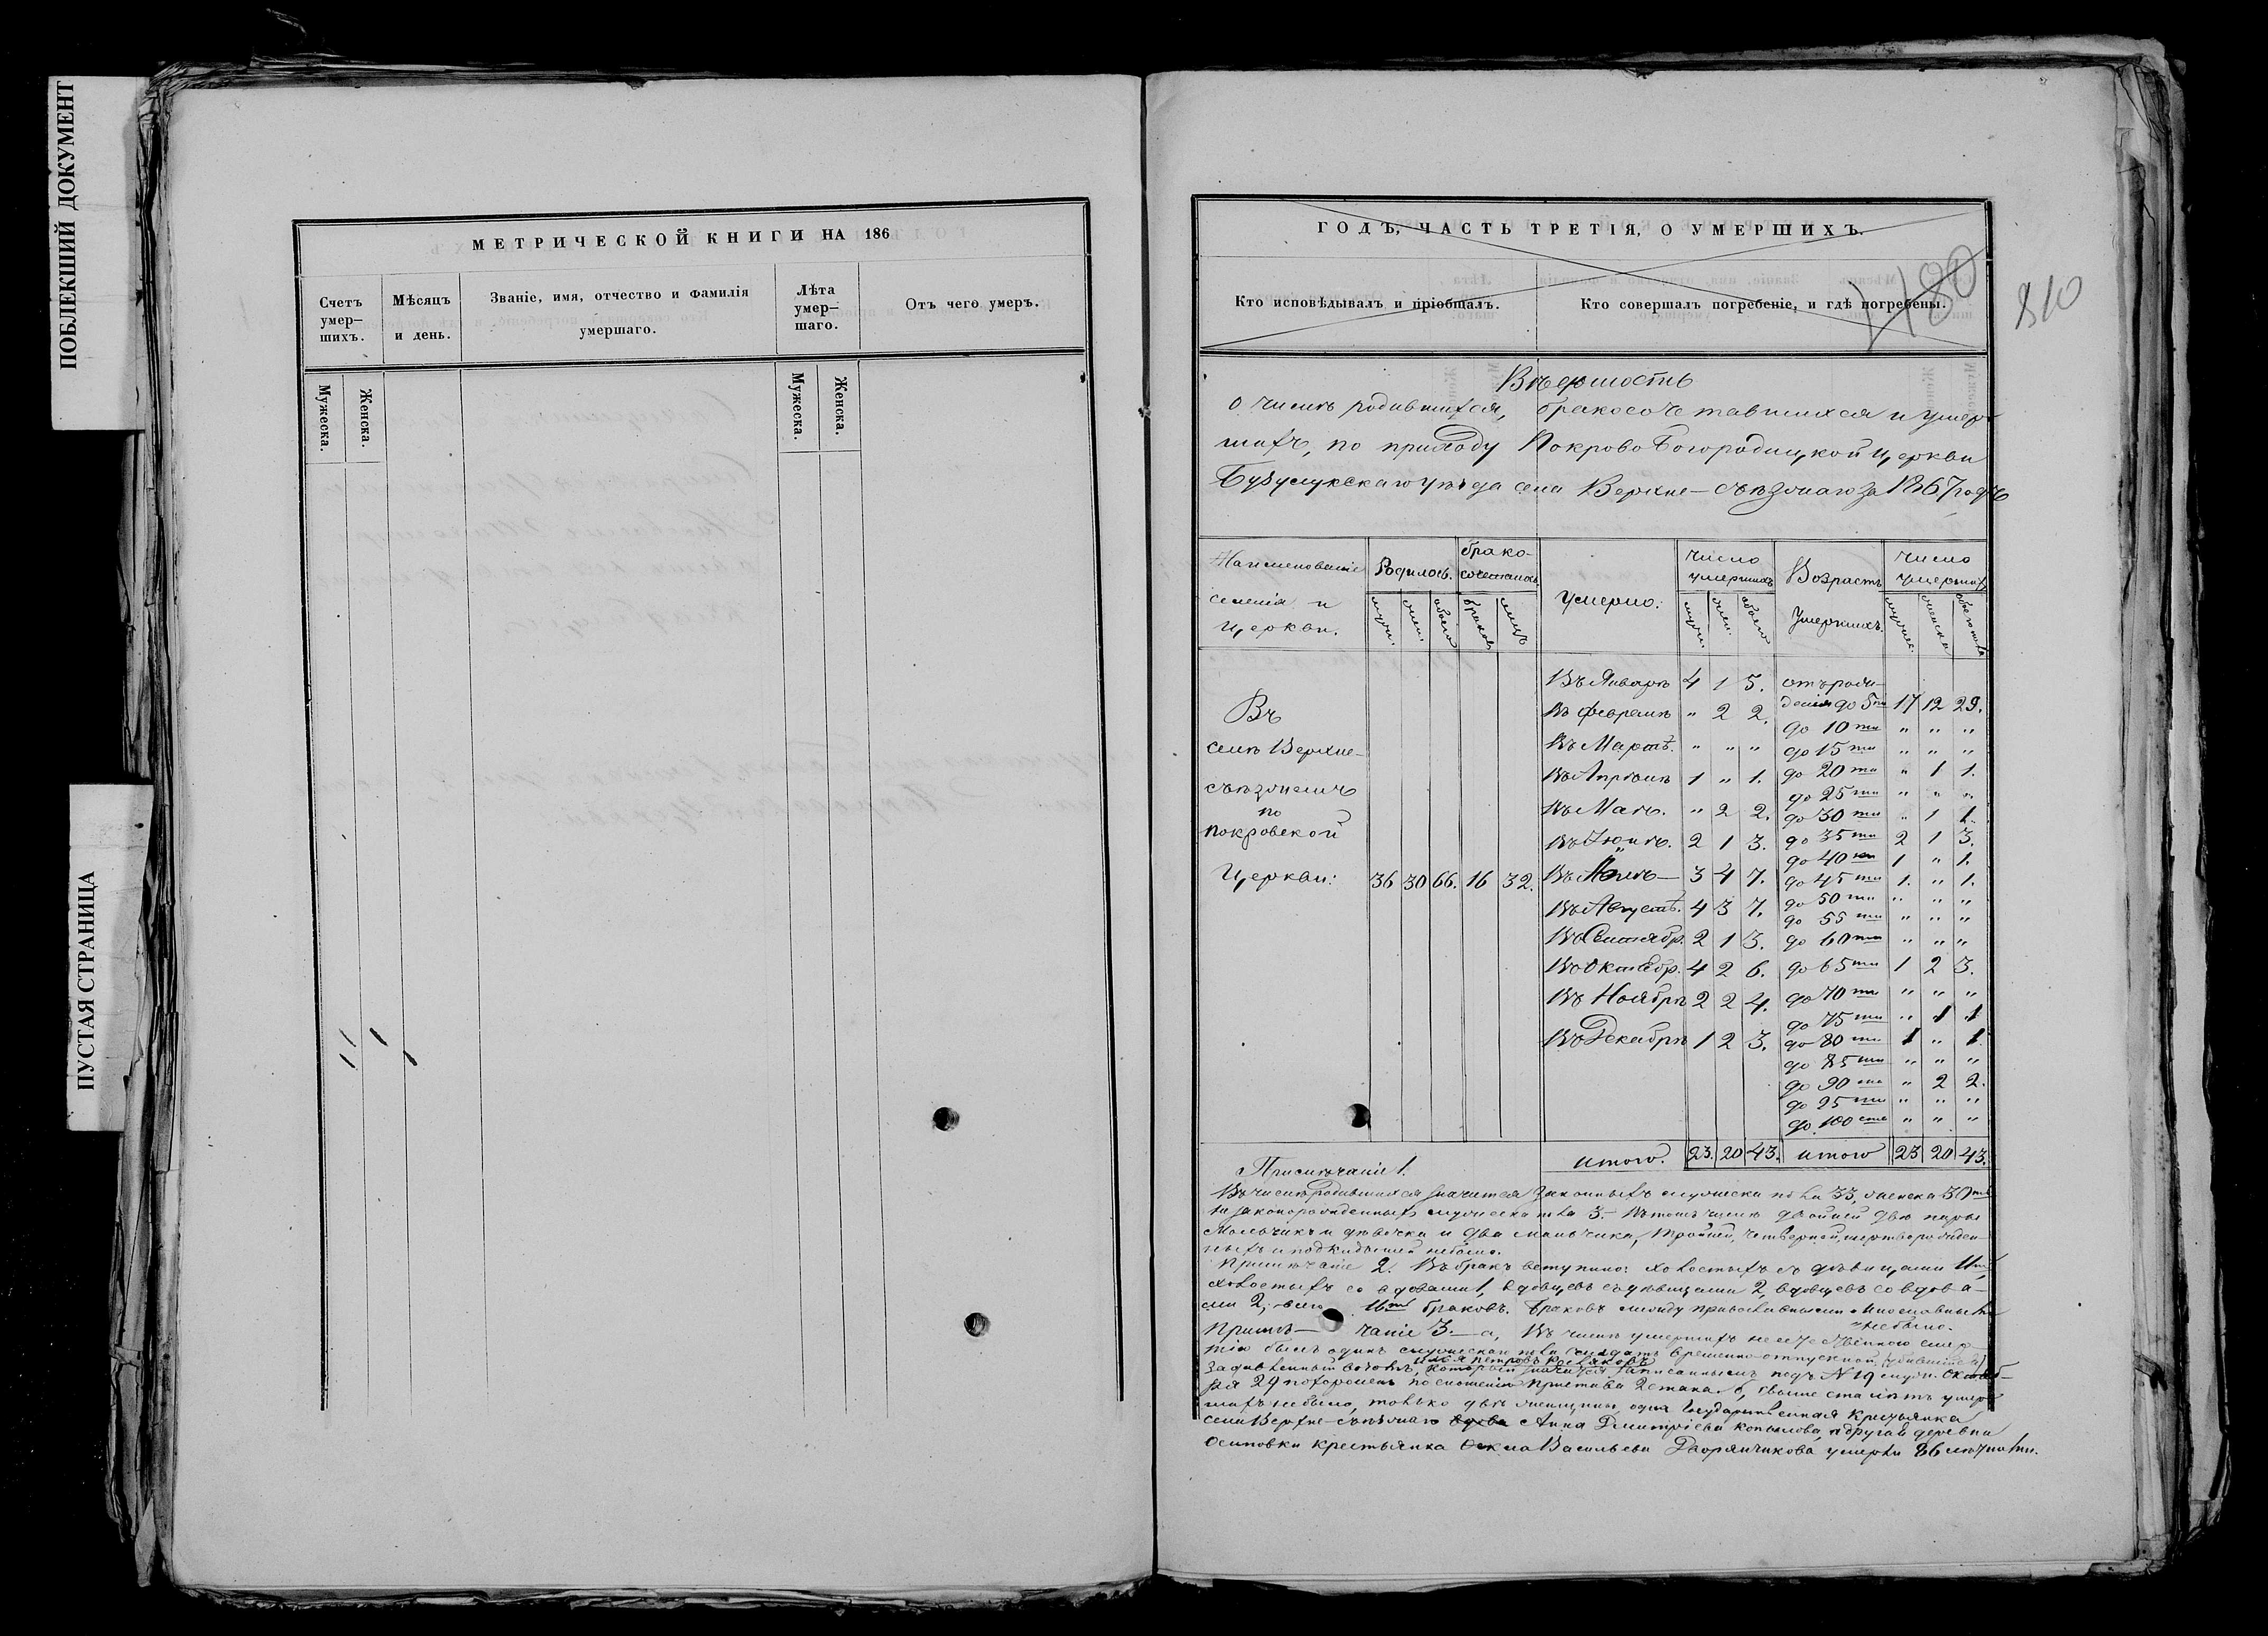 ПОБЛЕКШИЙ ДОКУМЕНТ
ПУСТАЯ СТРАНИЦА
МЕТРИЧЕСКОЙ КНИГИ НА 186
Счетъ умер—шихъ.
Мѣсяцъ и день.
Званіе, имя, отчество и фамилія умершаго.
Лѣта умер—шаго.
Отъ чего умеръ.
Мужеска. Женска. Мужеска. Женска.
ГОДЪ, ЧАСТЬ ТРЕТІЯ, О УМЕРШИХЪ.
Кто исповѣдывалъ и пріобщалъ.
Кто совершалъ погребеніе, и гдѣ погребены.
810
Вѣдомость
о числѣ родившихся, бракосочетавшихся и умер-
шихъ, по приходу Покрово Богородицкой церкви
Бузулукскаго уѣзда села Верхне-съѣзжаго за 1867 годъ
Наименованіе селенія и церкви.
Родилось.
муж. жен. обоего
брако-сочеталось.
браковъ лицъ
Умерло:
число умершихъ
муж. жен. обоего
Возрастъ умершихъ.
число умершихъ
мужеск. женска обоего пола
Въ
селѣ Верхне-
съѣзжемъ
по
покровской
Церкви: 36 30 66. 16 32.
Въ Январѣ 4 1 5.
Въ Февралѣ " 2 2.
Въ Мартѣ. " " "
Въ Апрѣлѣ 1 " 1.
Въ Маѣ. " 2 2.
Въ Іюнѣ. 2 1 3.
Въ Іюлѣ — 3 4 7.
Въ Августѣ. 4 3 7.
Въ Сентябр. 2 1 3.
Въ Октябр. 4 2 6.
Въ Ноябрѣ 2 2 4.
Въ Декабрѣ 1 2 3.
отъ рож-
денія до 5ти 17 12 29.
до 10ти " " "
до 15ти " " "
до 20ти " 1 1.
до 25ти " " "
до 30ти " 1 1.
до 35ти 2 1 3.
до 40ти 1 " 1.
до 45ти 1. " 1.
до 50ти " " "
до 55ти " " "
до 60ти " " "
до 65ти 1 2 3.
до 70ти " " "
до 75ти " 1 1
до 80ти 1 " 1.
до 85ти " " "
до 90та " 2 2.
до 95ти " " "
до 100ста " " "
итого. 23. 20 43. итого 23 20 43.
Примѣчаніе 1.
Въ числѣ родившихся значится законныхъ мужеска пола 33, женска 30ть
незаконорожденныхъ мужеска пола 3. Въ томъ числѣ двойней двѣ пары
мальчикъ и дѣвочка и два мальчика, тройней, четверней, мертворожден-
ныхъ и подкидышей небыло.
Примѣчаніе 2. Въ бракъ вступило: холостыхъ съ дѣвицами 11ть,
холостыхъ со вдовами 1, вдовцевъ съ дѣвицами 2, вдовцевъ со вдова-
ми 2. всего 16ть браковъ. Браковъ между православными и иносл
небыло.
Примѣ— чаніе 3. — а, Въ числѣ умершихъ неестественною смер
тію былъ одинъ мужеска пола солдатъ временно-отпускной
Петровъ
который значится записаннымъ подъ № 19 муж. Октяб-
ря 29 похороненъ по сношенію Пристава 2 стана. б, свыше ста лѣтъ умер
шихъ небыло, только двѣ женщины, одна государственная крестьянка
села Верхне-съѣзжаго вдова Анна Дмитріева Копылова, а другая деревни
Осиповки крестьянка Васильева Дворянчикова умерли 86 лѣтними.